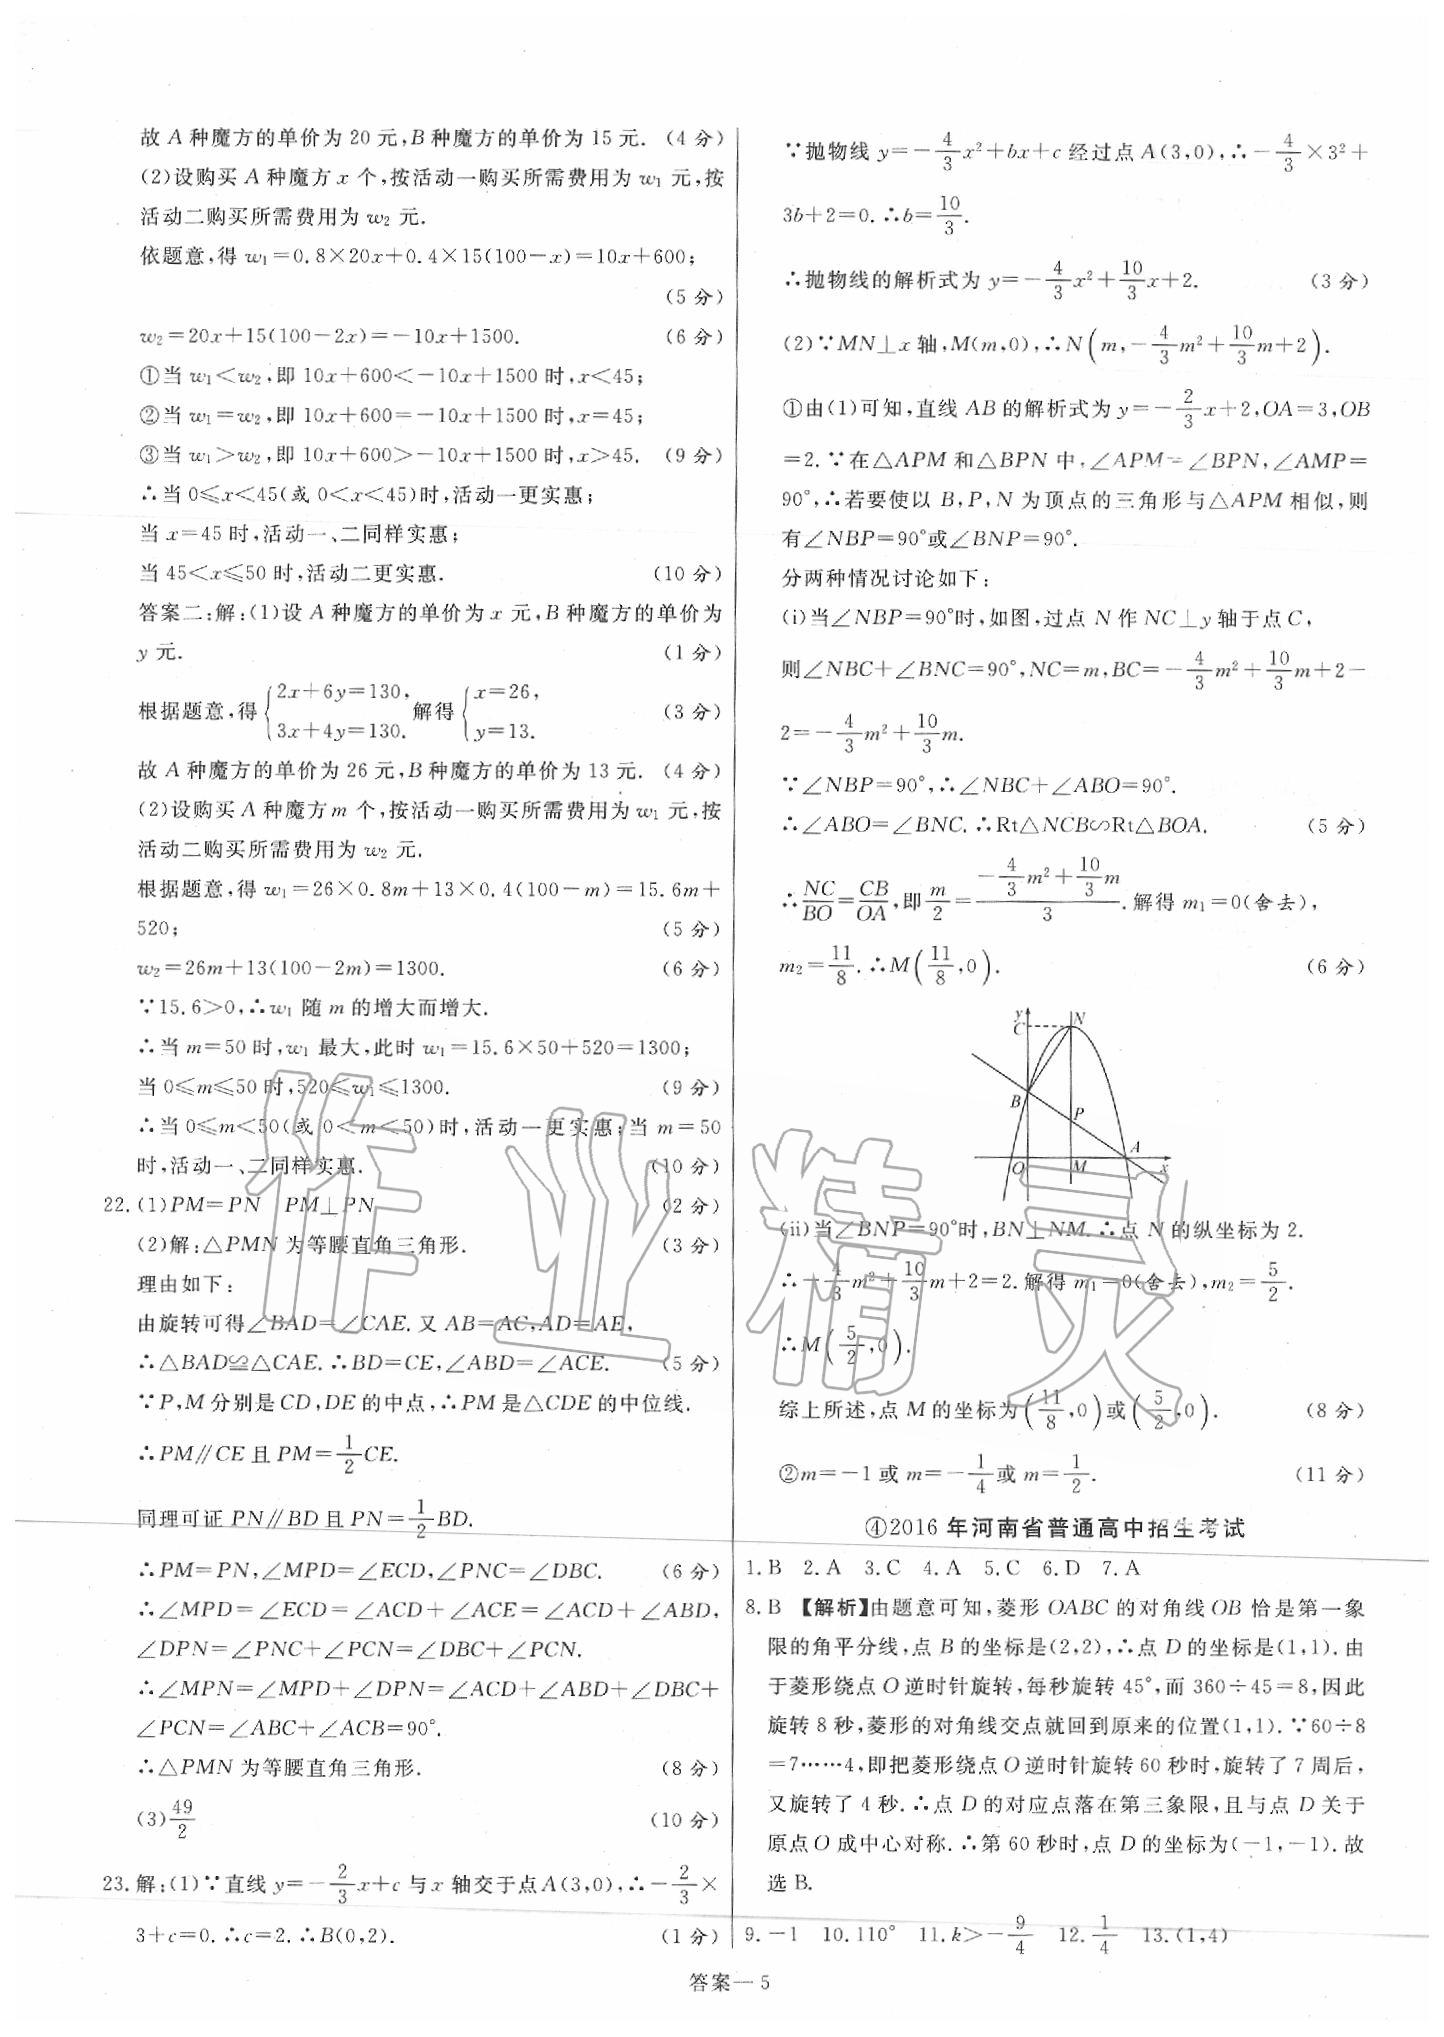 故 A 种魔方的单价为 20 元,B 种魔方的单价为 15 元. (4 分)
(2)设购买 A 种魔方 x 个,按活动一购买所需费用为 w₁ 元,按
活动二购买所需费用为 w₂ 元.
依题意,得 w₁=0.8×20x+0.4×15(100-x)=10x+600;
(5 分)
w₂=20x+15(100-2x)=-10x+1500. (6 分)
①当 w₁<w₂,即 10x+600<-10x+1500 时,x<45;
②当 w₁=w₂,即 10x+600=-10x+1500 时,x=45;
③当 w₁>w₂,即 10x+600>-10x+1500 时,x>45. (9 分)
∴当 0≤x<45(或 0<x<45)时,活动一更实惠;
当 x=45 时,活动一、二同样实惠;
当 45<x≤50 时,活动二更实惠. (10 分)
答案二:解:(1)设 A 种魔方的单价为 x 元,B 种魔方的单价为
y 元. (1 分)
根据题意,得{2x+6y=130, 3x+4y=130. 解得{x=26, y=13. (3 分)
故 A 种魔方的单价为 26 元,B 种魔方的单价为 13 元. (4 分)
(2)设购买 A 种魔方 m 个,按活动一购买所需费用为 w₁ 元,按
活动二购买所需费用为 w₂ 元.
根据题意,得 w₁=26×0.8m+13×0.4(100-m)=15.6m+
520; (5 分)
w₂=26m+13(100-2m)=1300. (6 分)
∵15.6>0,∴w₁ 随 m 的增大而增大.
∴当 m=50 时,w₁ 最大,此时 w₁=15.6×50+520=1300;
当 0≤m≤50 时,520≤w₁≤1300. (9 分)
∴当 0≤m<50(或 0<m<50)时,活动一更实惠;当 m=50
时,活动一、二同样实惠. (10 分)
22.(1)PM=PN PM⊥PN (2 分)
(2)解:△PMN 为等腰直角三角形. (3 分)
理由如下:
由旋转可得∠BAD=∠CAE.又 AB=AC,AD=AE,
∴△BAD≌△CAE.∴BD=CE,∠ABD=∠ACE. (5 分)
∵P,M 分别是 CD,DE 的中点,∴PM 是△CDE 的中位线.
∴PM∥CE 且 PM=1/2CE.
同理可证 PN∥BD 且 PN=1/2BD.
∴PM=PN,∠MPD=∠ECD,∠PNC=∠DBC. (6 分)
∴∠MPD=∠ECD=∠ACD+∠ACE=∠ACD+∠ABD,
∠DPN=∠PNC+∠PCN=∠DBC+∠PCN.
∴∠MPN=∠MPD+∠DPN=∠ACD+∠ABD+∠DBC+
∠PCN=∠ABC+∠ACB=90°.
∴△PMN 为等腰直角三角形. (8 分)
(3)49/2 (10 分)
23.解:(1)∵直线 y=-2/3x+c 与 x 轴交于点 A(3,0),∴-2/3×
3+c=0.∴c=2.∴B(0,2). (1 分)
∵抛物线 y=-4/3x²+bx+c 经过点 A(3,0),∴-4/3×3²+
3b+2=0.∴b=10/3.
∴抛物线的解析式为 y=-4/3x²+10/3x+2. (3 分)
(2)∵MN⊥x 轴,M(m,0),∴N(m,-4/3m²+10/3m+2).
①由(1)可知,直线 AB 的解析式为 y=-2/3x+2,OA=3,OB
=2.∵在△APM 和△BPN 中,∠APM=∠BPN,∠AMP=
90°,∴若要使以 B,P,N 为顶点的三角形与△APM 相似,则
有∠NBP=90°或∠BNP=90°.
分两种情况讨论如下:
(i)当∠NBP=90°时,如图,过点 N 作 NC⊥y 轴于点 C,
则∠NBC+∠BNC=90°,NC=m,BC=-4/3m²+10/3m+2-
2=-4/3m²+10/3m.
∵∠NBP=90°,∴∠NBC+∠ABO=90°.
∴∠ABO=∠BNC.∴Rt△NCB∽Rt△BOA. (5 分)
∴NC/BO=CB/OA,即m/2=(-4/3m²+10/3m)/3.解得 m₁=0(舍去),
m₂=11/8.∴M(11/8,0). (6 分)
y
C
N
B
P
A
O
M
x
(ii)当∠BNP=90°时,BN⊥NM.∴点 N 的纵坐标为 2.
∴-4/3m²+10/3m+2=2.解得 m₁=0(舍去),m₂=5/2.
∴M(5/2,0).
综上所述,点 M 的坐标为(11/8,0)或(5/2,0). (8 分)
②m=-1 或 m=-1/4或 m=1/2. (11 分)
④2016 年河南省普通高中招生考试
1.B 2.A 3.C 4.A 5.C 6.D 7.A
8.B 【解析】由题意可知,菱形 OABC 的对角线 OB 恰是第一象
限的角平分线,点 B 的坐标是(2,2),∴点 D 的坐标是(1,1).由
于菱形绕点 O 逆时针旋转,每秒旋转 45°,而 360÷45=8,因此
旋转 8 秒,菱形的对角线交点就回到原来的位置(1,1).∵60÷8
=7……4,即把菱形绕点 O 逆时针旋转 60 秒时,旋转了 7 周后,
又旋转了 4 秒.∴点 D 的对应点落在第三象限,且与点 D 关于
原点 O 成中心对称.∴第 60 秒时,点 D 的坐标为(-1,-1).故
选 B.
9.-1 10.110° 11.k>-9/4 12.1/4 13.(1,4)
答案—5
作业精灵